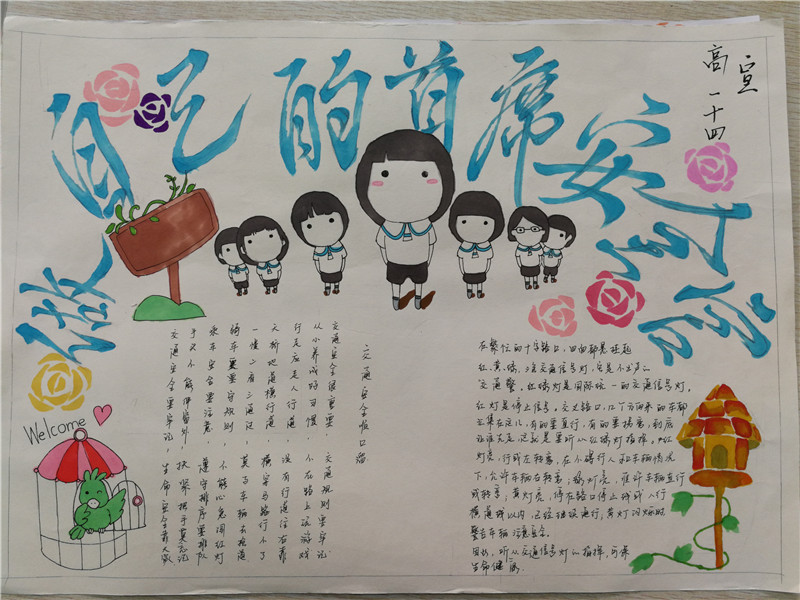 做自己的首席安全官
高一十四
宣
交通安全顺口溜
交通安全很重要，交通规则要牢记
从小养成好习惯，不在路上玩游戏
行走应走人行道，没有行道往右靠
天桥地道横行道，横穿马路行不了
一慢二看三通过，莫与车辆去抢道
骑车更要守规则，不能心急闯红灯
乘车安全要注意，遵守排序要排队
手又不能伸窗外，扶紧把手莫忘记
交通安全要牢记，生命安全
Welcome
在繁忙的十字路口，四面都悬挂起
红、黄、绿、三色交通信号灯，它是不出声的
交通警。红绿灯是国际统一的交通信号灯。
红灯是停止信号。交叉路口，几个方向来的车都
汇集在这儿，有的要直行，有的要拐弯，到底
让谁先走，这就是要听从红绿灯指挥。红
灯亮，行或左转弯，在不碍行人和车辆情况
下，允许车辆右转弯；绿灯亮，准许车辆直行
或转弯；黄灯亮，停在路口停止线或人行
横道线以内，已经继续通行；黄灯闪烁时
警告车辆注意安全。
因此，听从交通信号灯的指挥，可保
生命健康。